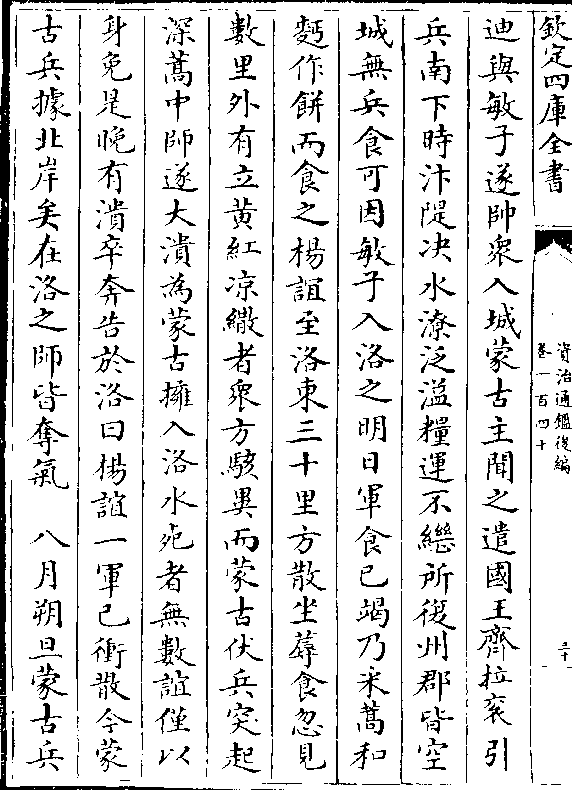 欽定四庫全書
資治通鑑後編
卷一百四十
三十
迪與敏子遂帥衆入城蒙古主聞之遣國王齊拉衮引
兵南下時汴隄决水潦泛溢糧運不繼所復州郡皆空
城無兵食可因敏子入洛之明日軍食已竭乃采蒿和
麪作餅而食之楊誼至洛東三十里方散坐蓐食忽見
數里外有立黄紅凉繖者衆方駭異而蒙古伏兵突起
深蒿中師遂大潰為蒙古擁入洛水死者無數誼僅以
身免是晚有潰卒奔告於洛曰楊誼一軍已衝散今蒙
古兵據北岸矣在洛之師皆奪氣　八月朔旦蒙古兵